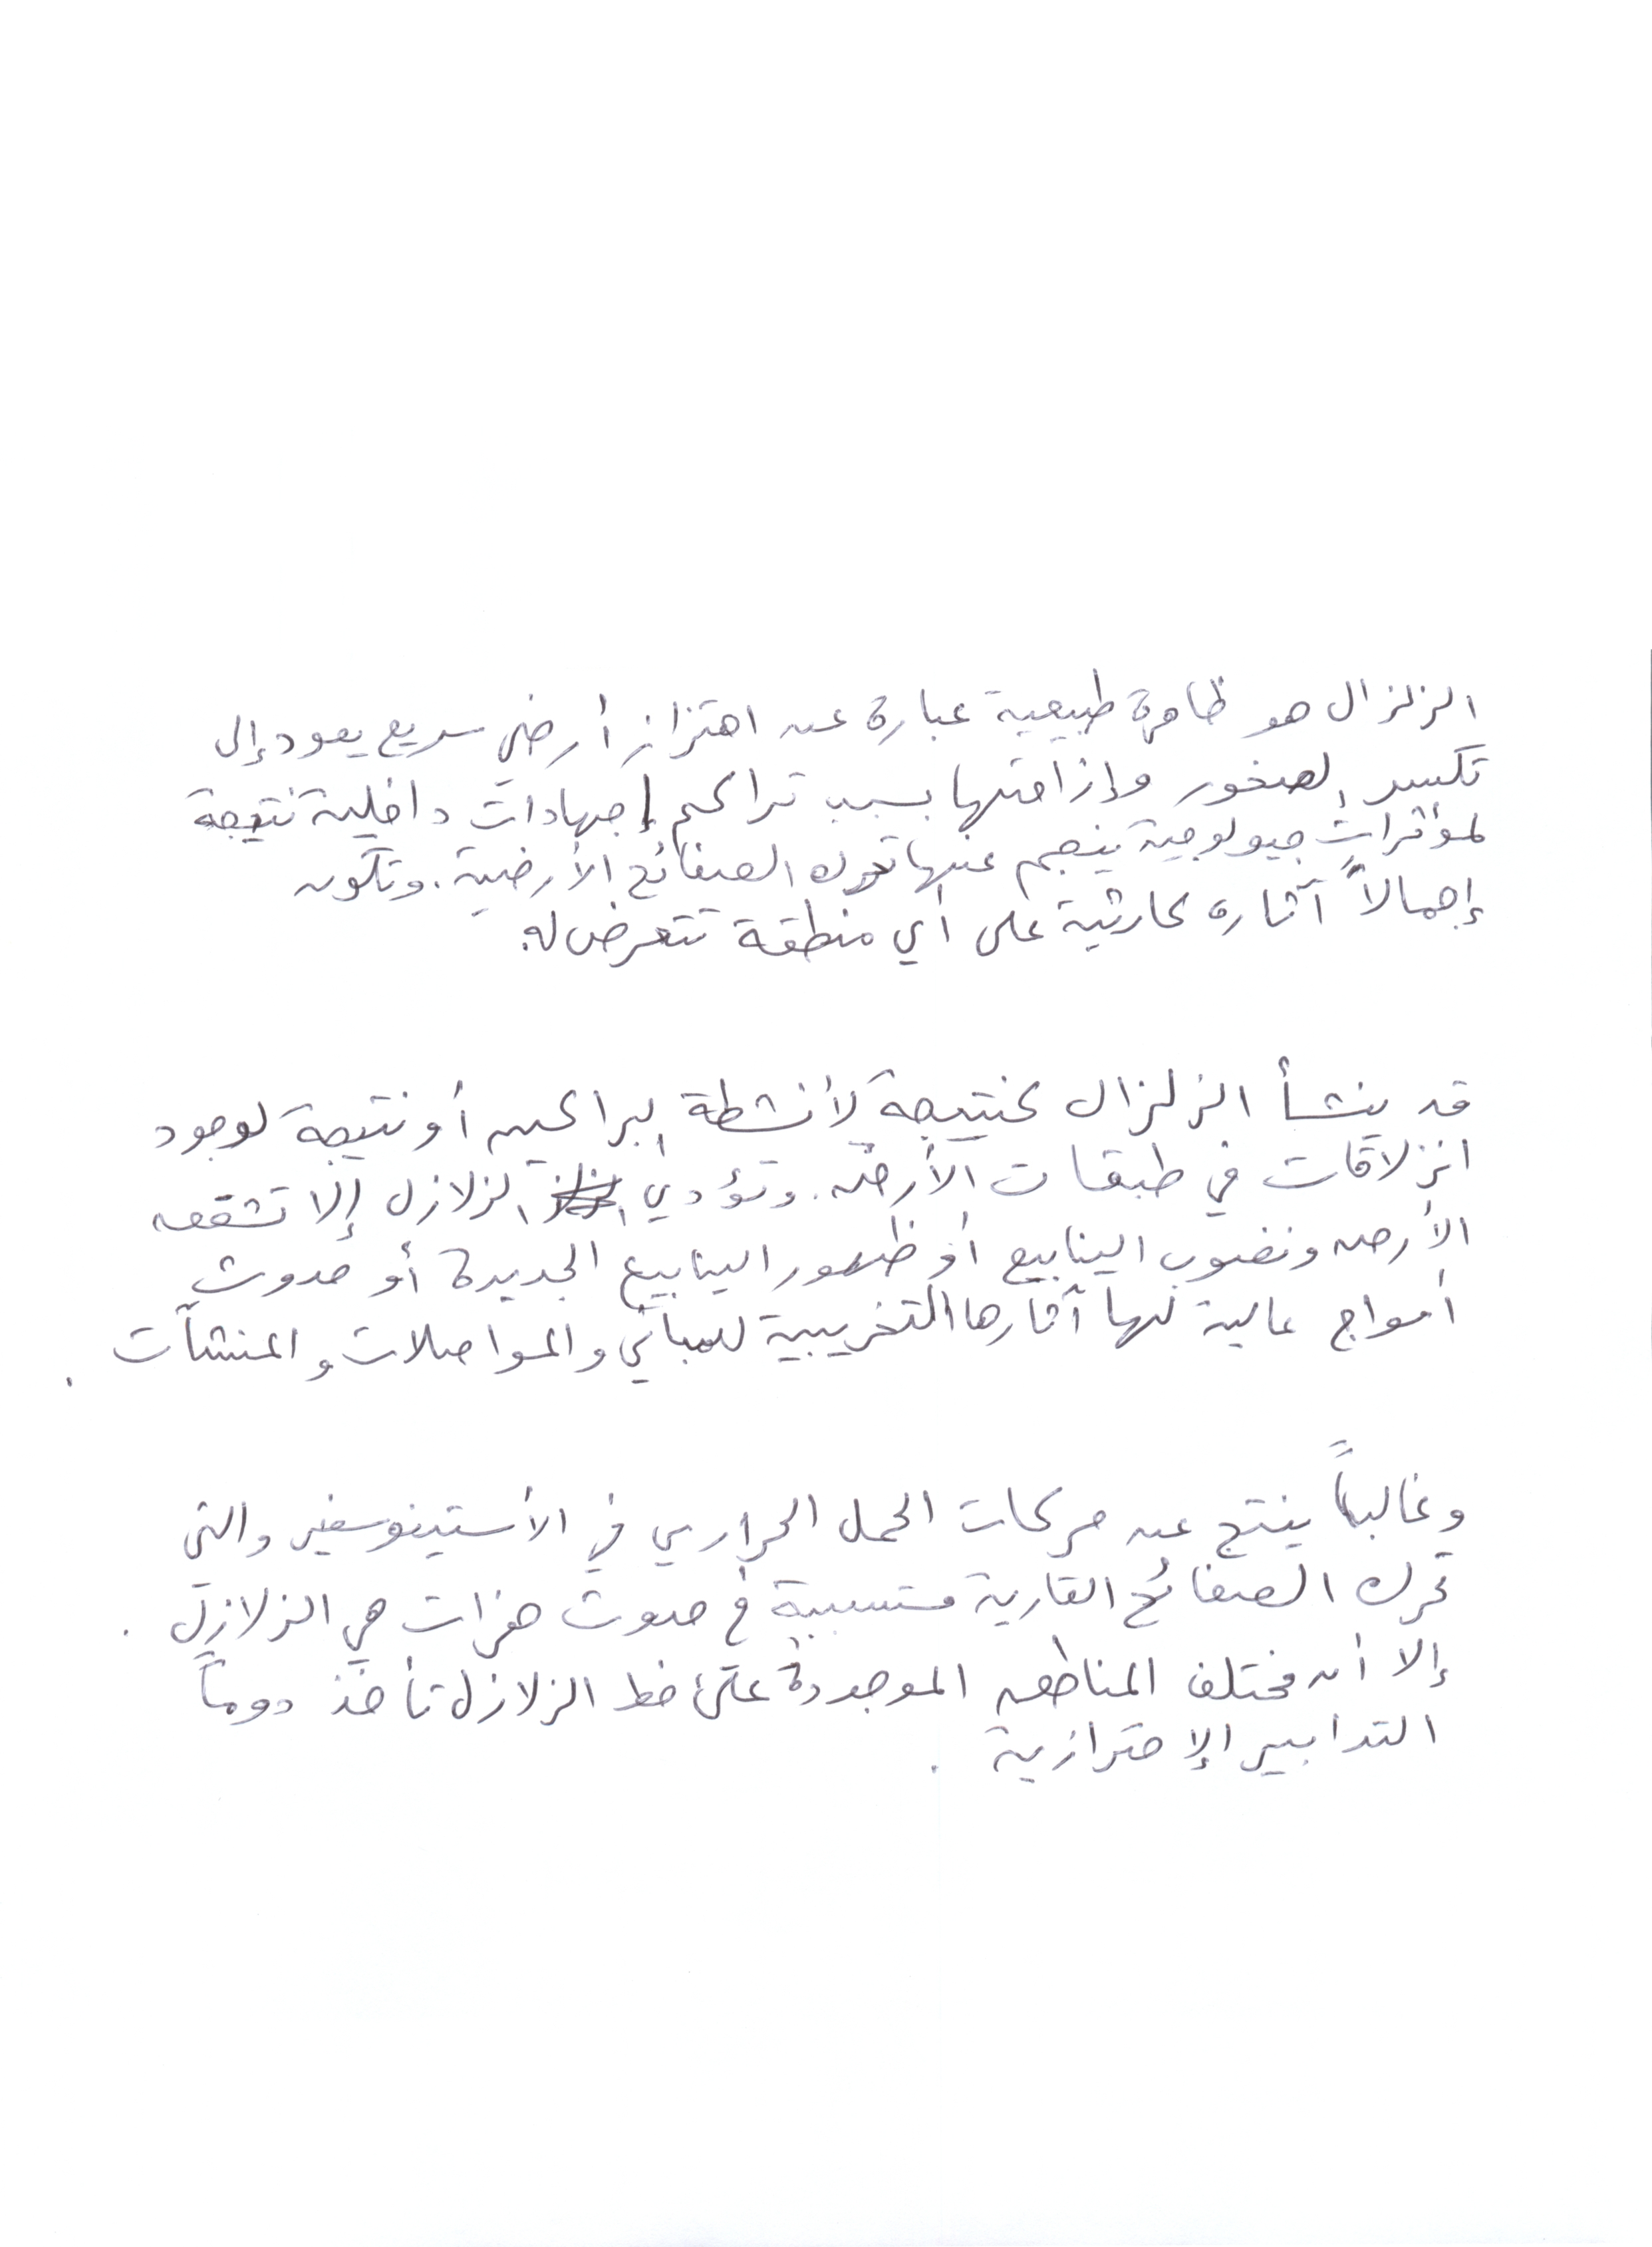 الزلزال هو ظاهرة طبيعية عبارة عن اهتزاز أرضي سريع يعود إلى
تكسر الصخور وإزاحتها بسبب تراكم إجهادات داخلية نتيجة
لمؤثرات جيولوجية ينجم عنها تحرك الصفائح الأرضية. وتكون
إجمالاً آثاره كارثية على أي منطقة تتعرض له.
قد ينشأ الزلزال كنتيجة لأنشطة البراكين أو نتيجة لوجود
انزلاقات في طبقات الأرض. وتؤدي الزلازل إلا تشقق
الأرض ونضوب الينابيع أو ظهور الينابيع الجديدة أو حدوث
أمواج عالية لها آثارها التخريبية للمباني والمواصلات والمنشآت .
وغالباً ينتج عن حركات الحمل الحراري في الأستينوسفير والتي
تحرك الصفائح القارية متسببة في حدوث هزات هي الزلازل .
إلا أن مختلف المناطق الموجودة على خط الزلازل تأخذ دوماً
التدابير الإحترازية .